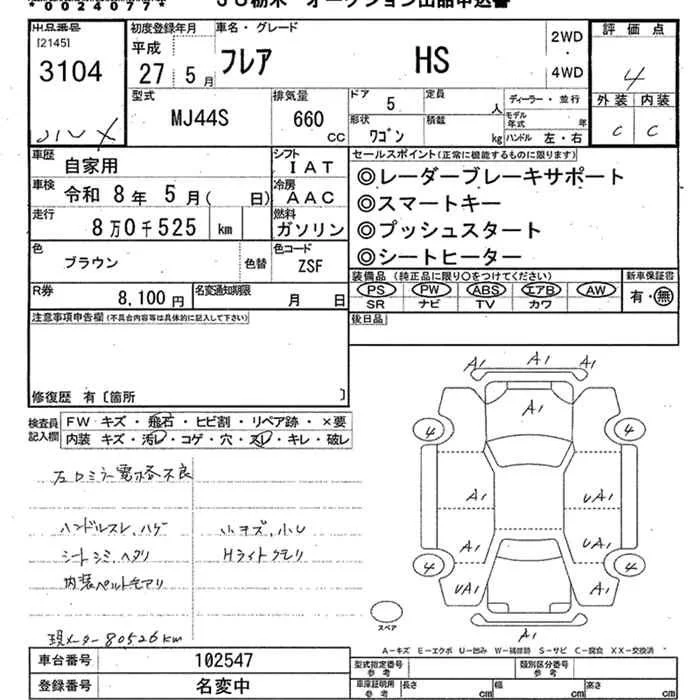 *00240774*
JU栃木 オークション出品申込書
出品番号 [2145] 3104
初度登録年月 平成 27年 5月
車名・グレード フレア HS
2WD・4WD
評価点 4
外装 C 内装 C
型式 MJ44S
排気量 660 CC
ドア 5
定員 人
ディーラー・並行
形状 ワゴン
積載 kg
モデル年式 年
ハンドル 左・右
車歴 自家用
シフト IAT
車検 令和 8年 5月( 日)
冷房 AAC
走行 8万0千525 km
燃料 ガソリン
色 ブラウン 色替
色コード ZSF
セールスポイント(正常に機能するものに限ります)
◎レーダーブレーキサポート
◎スマートキー
◎プッシュスタート
◎シートヒーター
装備品 (純正品に限り○をつけてください)
PS PW ABS エアB AW
SR ナビ TV カワ
新車保証書 有・無
R券 8,100円
名変通知期限 月 日
注意事項申告欄(不具合内容等は具体的に記入して下さい)
後日品
修復歴 有〔箇所 〕
検査員記入欄
FW キズ・飛石・ヒビ割・リペア跡・×要
内装 キズ・汚レ・コゲ・穴・スレ・キレ・破レ
左ロミラー電格不良
ハンドルスレ、ハゲ
小キズ、小U
シートシミ、ヘタリ
Hライトクモリ
内装ベルトモアリ
現メーター80526km
A1 A1 A1
A1
4 4
A1 UA1
A1 A1
4 4
UA1 UA1
A1
スペア
A-キズ E-エクボ U-凹み W-補修跡 S-サビ C-腐食 XX-交換済
車台番号 102547
登録番号 名変中
型式指定番号 参考
類別区分番号 参考
車庫証明用 参考 長さ cm 幅 cm 高さ cm